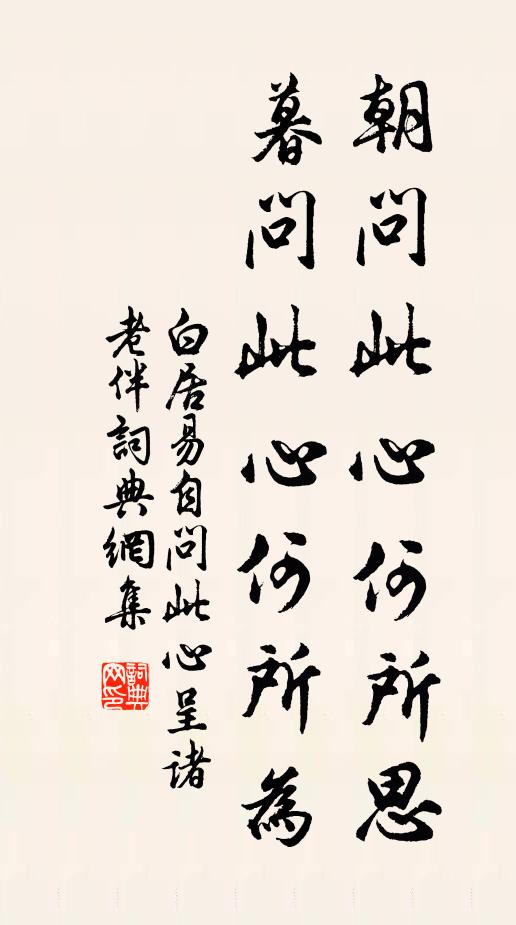 朝問此心何所思
暮問此心何所為
白居易自問此心呈諸
老伴詞典網集
詞典網印